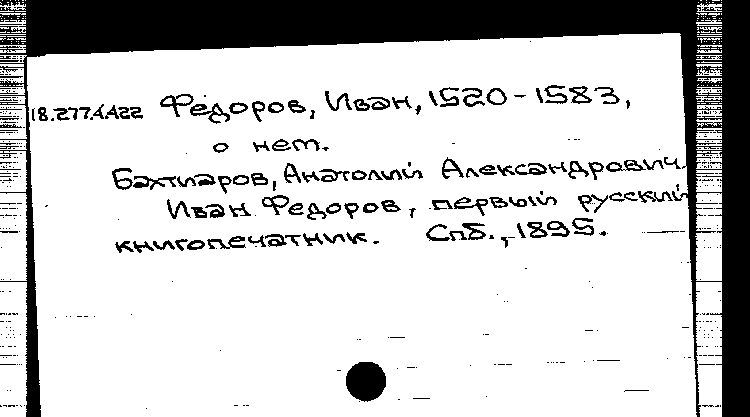 18.277.A.A22 Федоров, Иван, 1520-1583,
о нем.
Бахтиаров, Анатолий Александрович.
Иван Федоров, первый русский
книгопечатник. Спб., 1895.